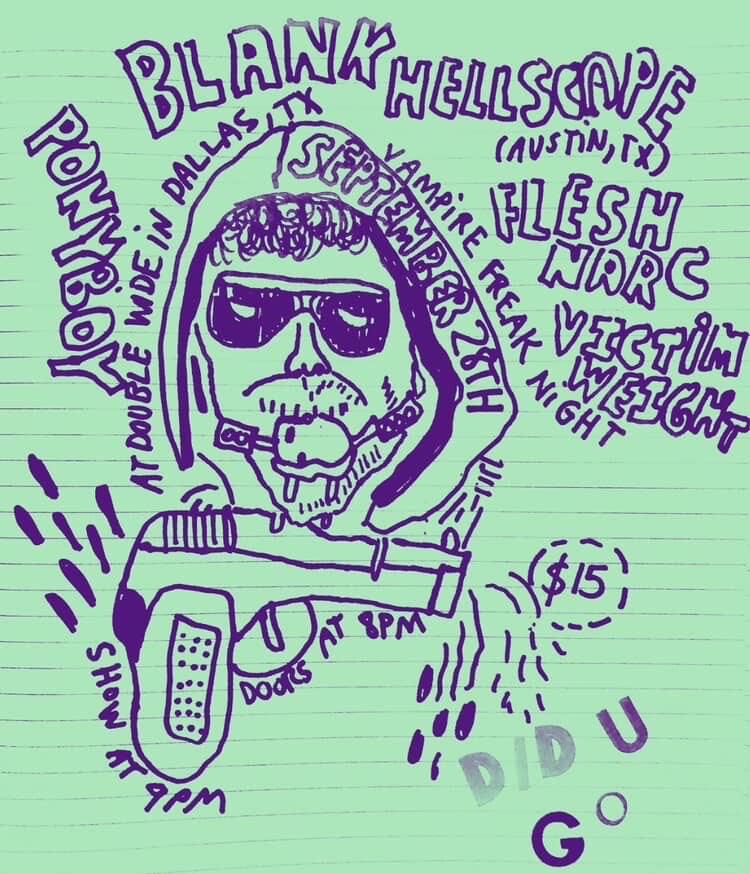 BLANK HELLSCAPE
(AUSTIN, TX)
PONYBOY
FLESH
NARC
VICTIM
WEIGHT
AT DOUBLE WIDE IN DALLAS, TX
SEPTEMBER 28TH
VAMPIRE FREAK
NIGHT
$15
DOORS AT 8PM
SHOW AT 9PM
DID U
GO